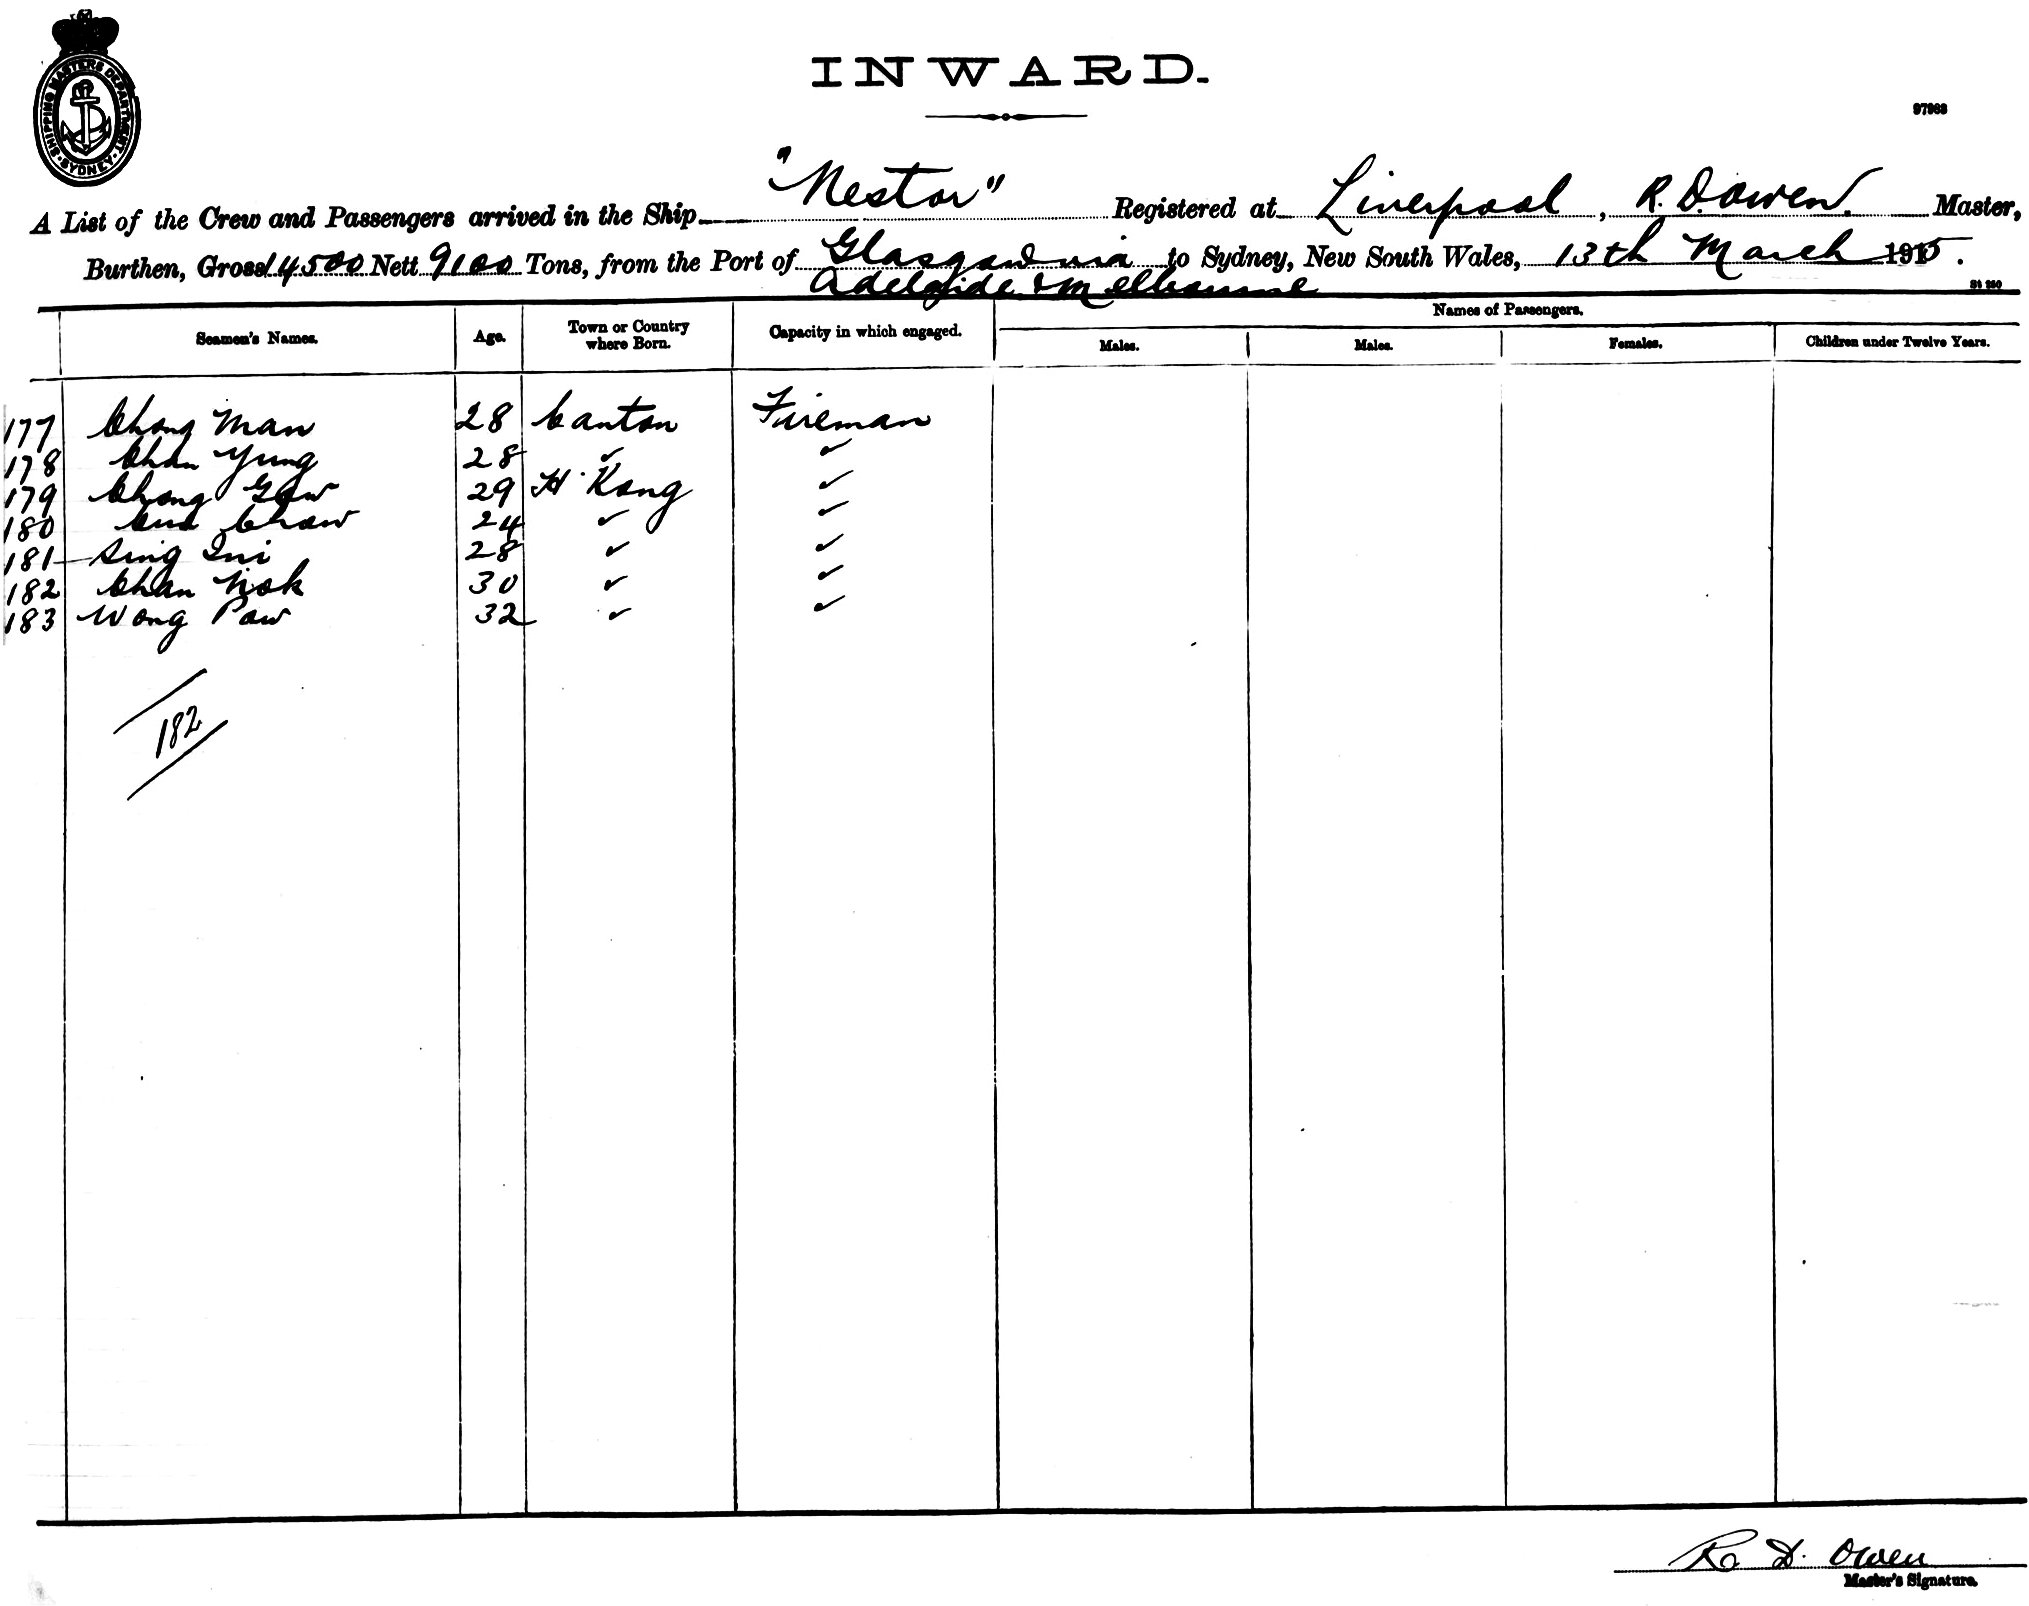 SHIPPING MASTERS DEPARTMENT · SYDNEY ·
INWARD.
97963
A List of the Crew and Passengers arrived in the Ship "Nestor" Registered at Liverpool, R. D. Owen. Master,
Burthen, Gross 14500 Nett 9100 Tons, from the Port of Glasgow via to Sydney, New South Wales, 13th March 1915.
Adelaide & Melbourne
Names of Passengers.
Seamen's Names. Age. Town or Country where Born. Capacity in which engaged. Males. Males. Females. Children under Twelve Years.
177 Chong Man 28 Canton Fireman
178 Chan Yung 28 ✓ ✓
179 Chong Gow 29 H. Kong ✓
180 Chow 24 ✓ ✓
181 Sing 28 ✓ ✓
182 Chan Nok 30 ✓ ✓
183 Wong Paw 32 ✓ ✓
182
R. D. Owen
Master's Signature.